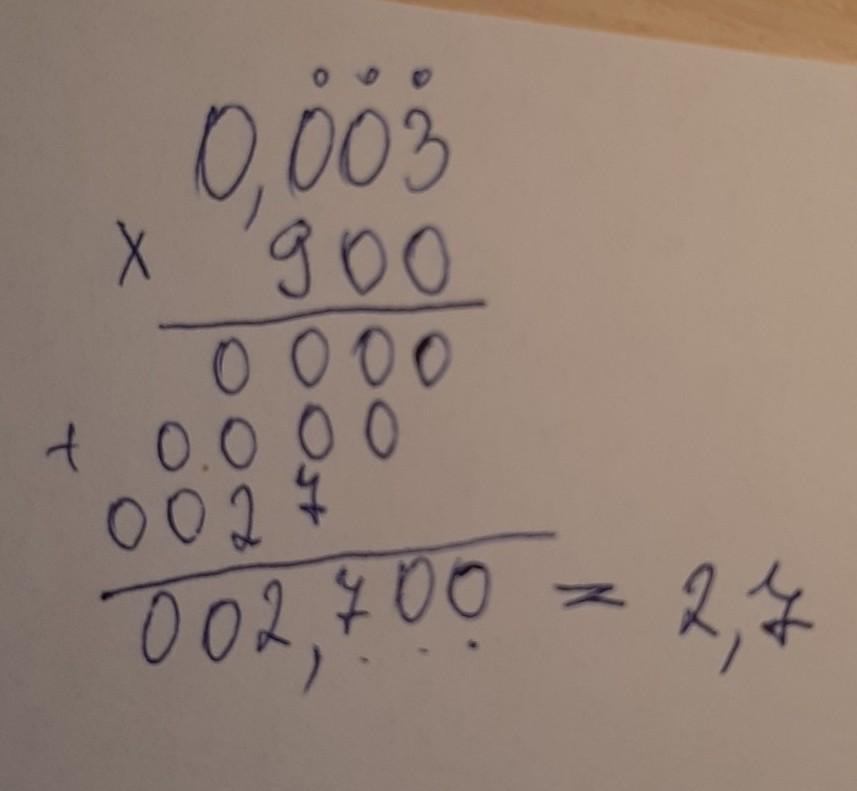 0,003
x 900
0000
+ 0000
0027
002,700 = 2,7